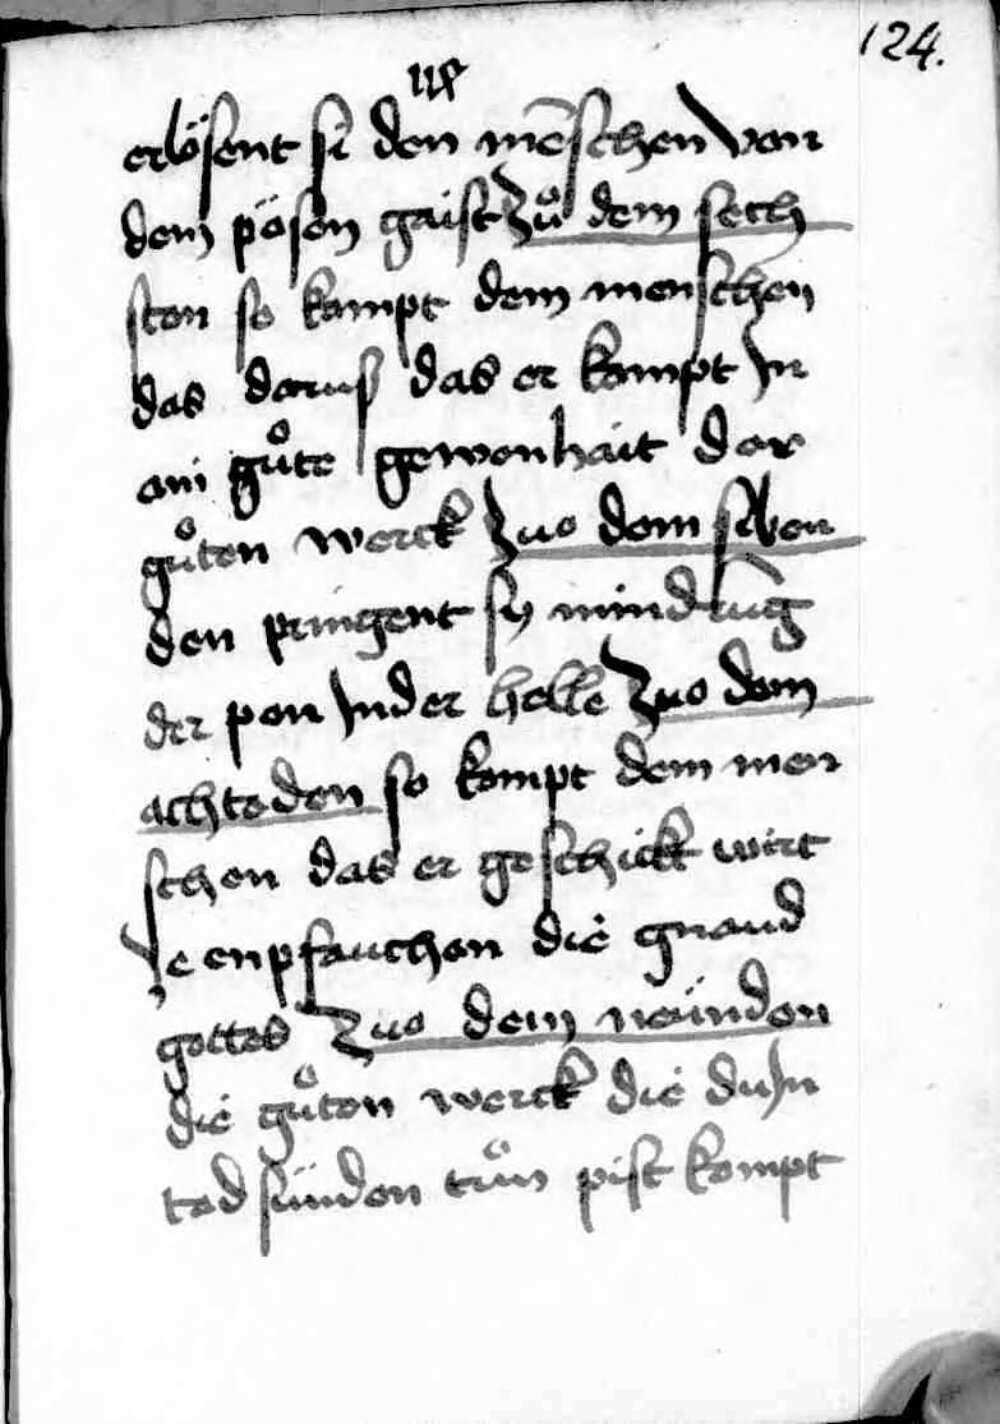 124.
erlösent si den mēschen von
dem pösen gaist Zů dem sech
sten so kompt dem menschen
das darus das er kompt In
ain gůte gewonhait der
gůten werck Zuo dem siben
den pringent sy mindrūg
der pen Inder helle Zuo dem
achteden so kompt dem men
schen das er geschickt wirt
ze enpfauchen die gnaud
gottes Zuo dem neünden
die gůten werck die du In
tod sünden tůn pist kompt